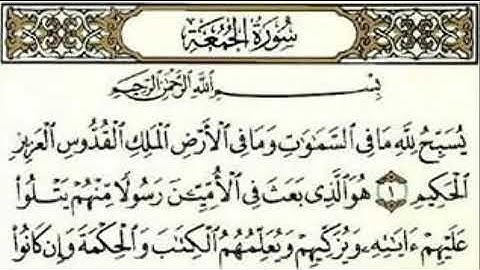 سُورَةُ الجُمُعَةِ
بِسْمِ ٱللَّهِ ٱلرَّحْمَٰنِ ٱلرَّحِيمِ
يُسَبِّحُ لِلَّهِ مَا فِي ٱلسَّمَٰوَٰتِ وَمَا فِي ٱلْأَرْضِ ٱلْمَلِكِ ٱلْقُدُّوسِ ٱلْعَزِيزِ
ٱلْحَكِيمِ ۝١ هُوَ ٱلَّذِي بَعَثَ فِي ٱلْأُمِّيِّـۧنَ رَسُولًا مِّنْهُمْ يَتْلُوا۟
عَلَيْهِمْ ءَايَٰتِهِۦ وَيُزَكِّيهِمْ وَيُعَلِّمُهُمُ ٱلْكِتَٰبَ وَٱلْحِكْمَةَ وَإِن كَانُوا۟